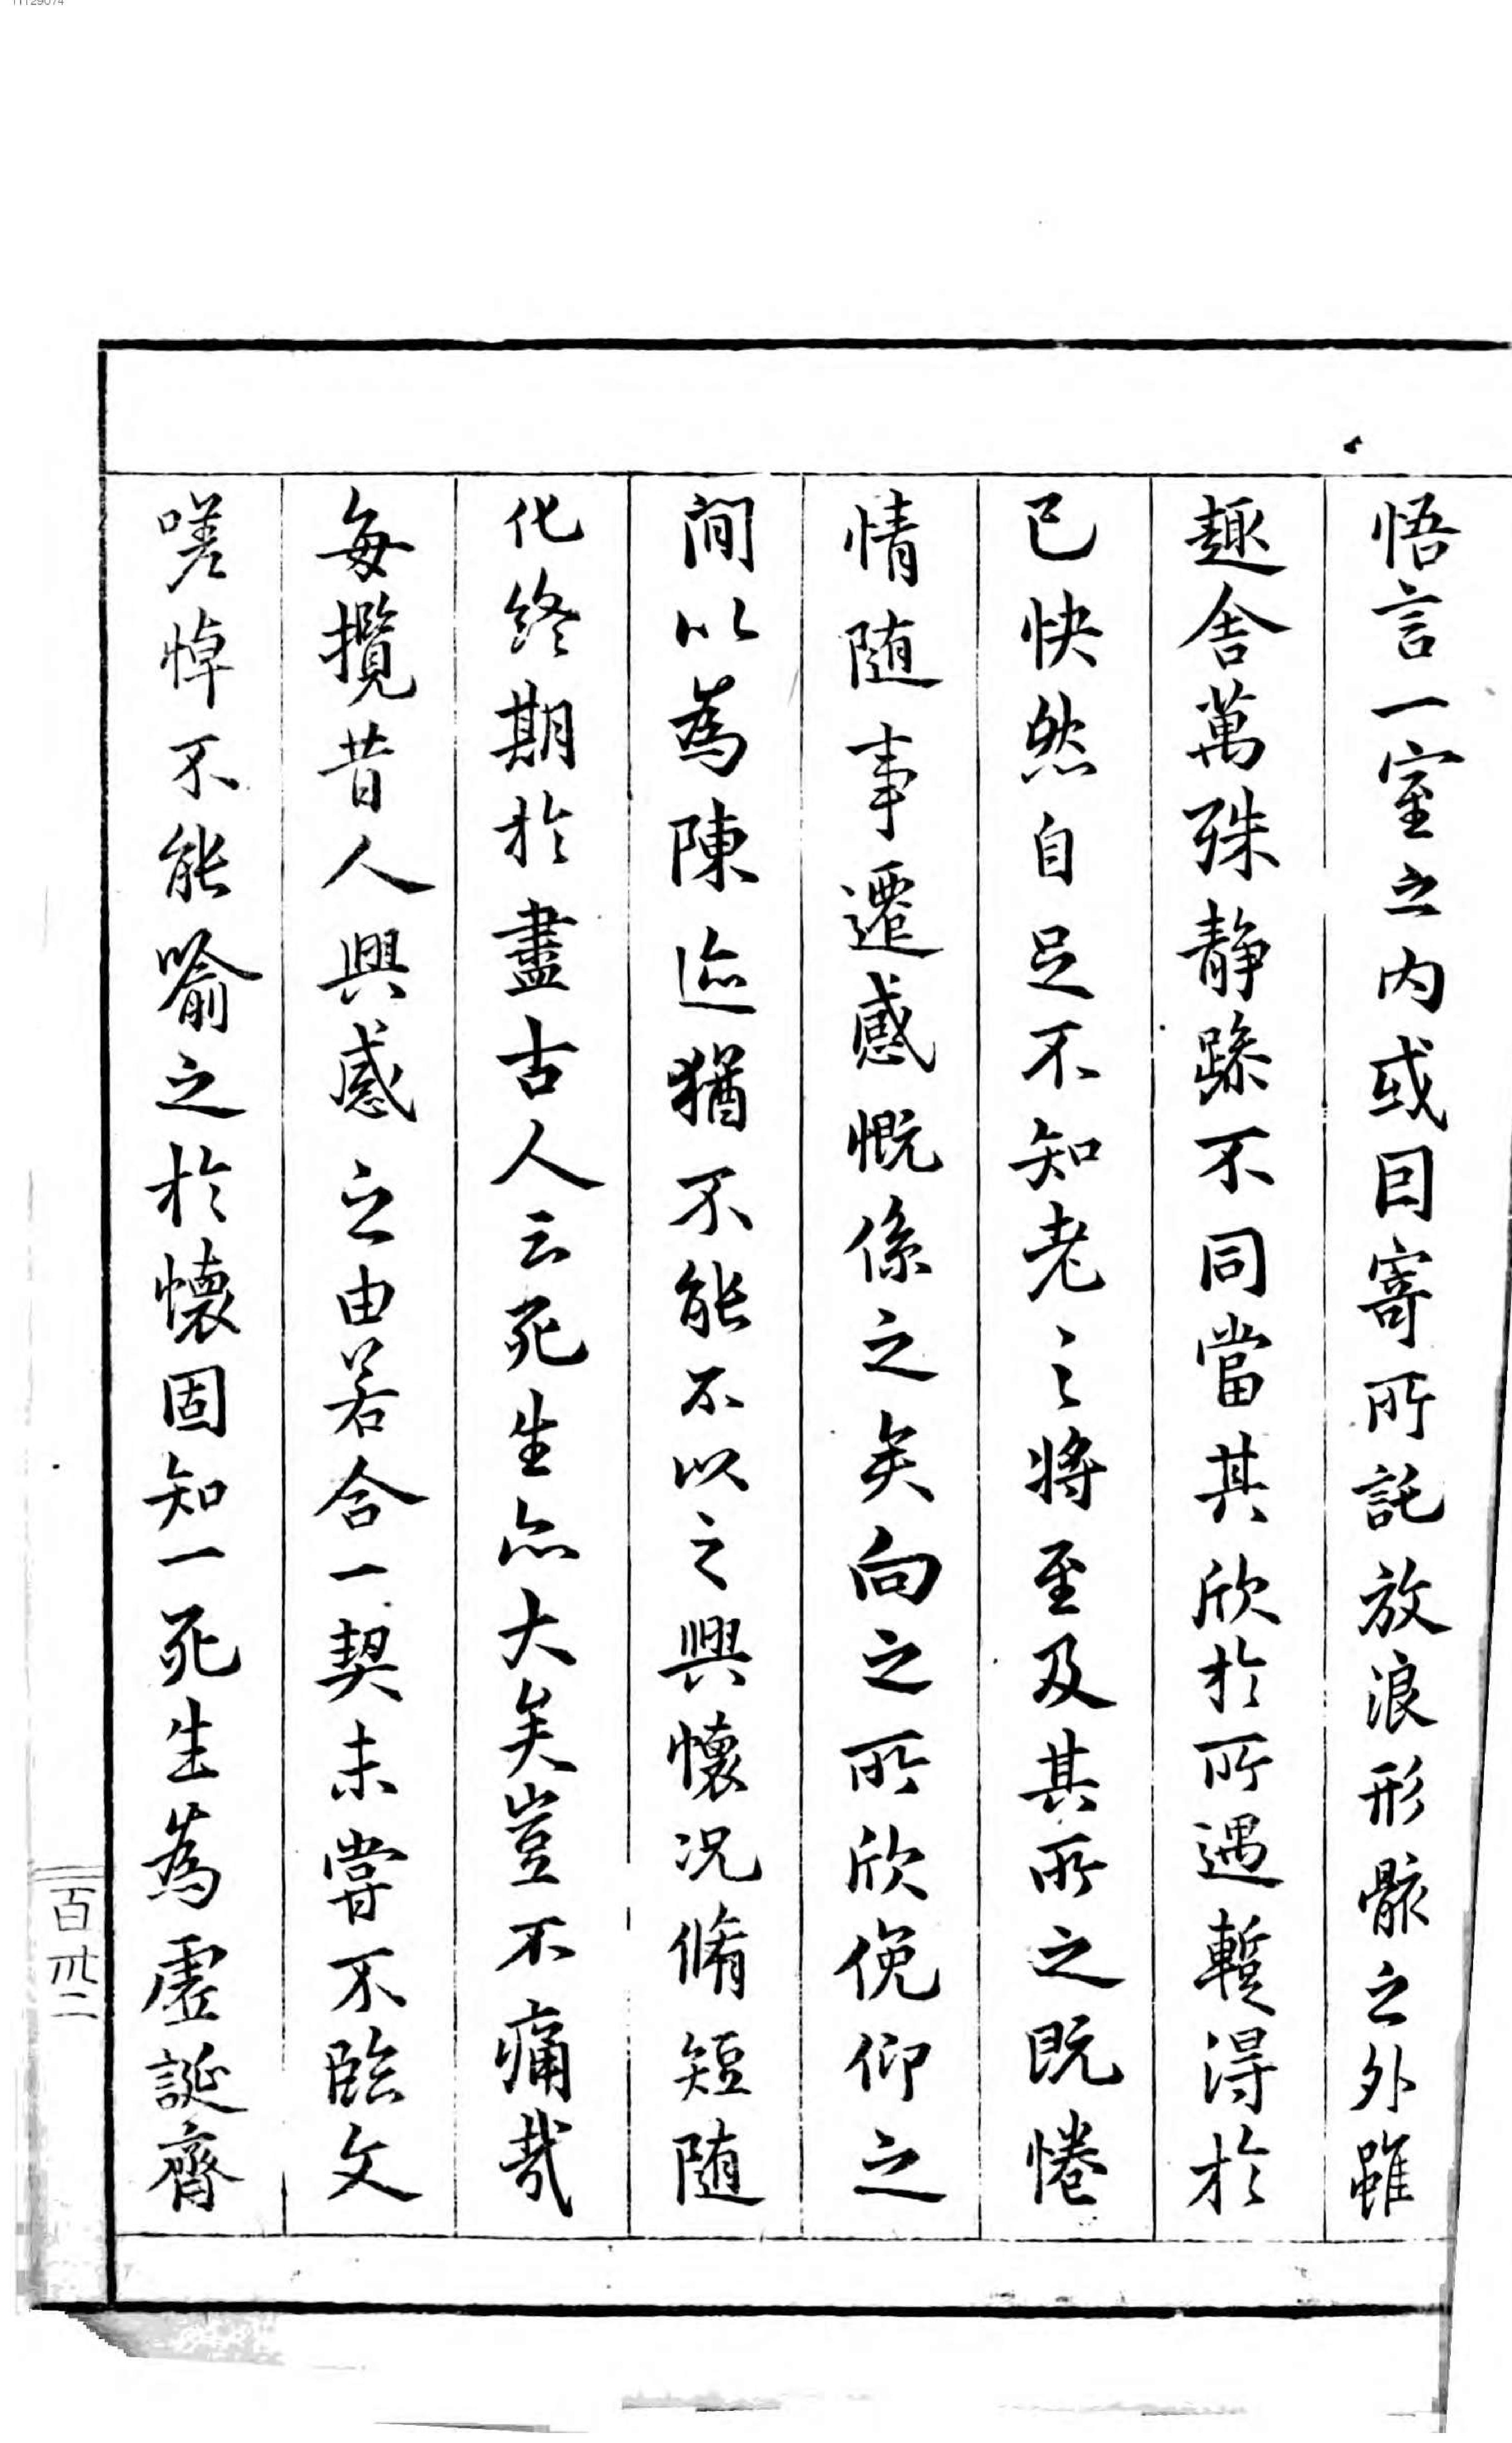 11129074
悟言一室之内或因寄所託放浪形骸之外雖
趣舎萬殊静躁不同當其欣於所遇蹔得於
己快然自足不知老之将至及其所之既惓
情随事遷感慨係之矣向之所欣俛仰之
間以為陳迹猶不能不以之興懷况脩短随
化終期於盡古人云死生亦大矣豈不痛哉
每攬昔人興感之由若合一契未嘗不臨文
嗟悼不能喻之於懷固知一死生為虚誕齊
百卌二